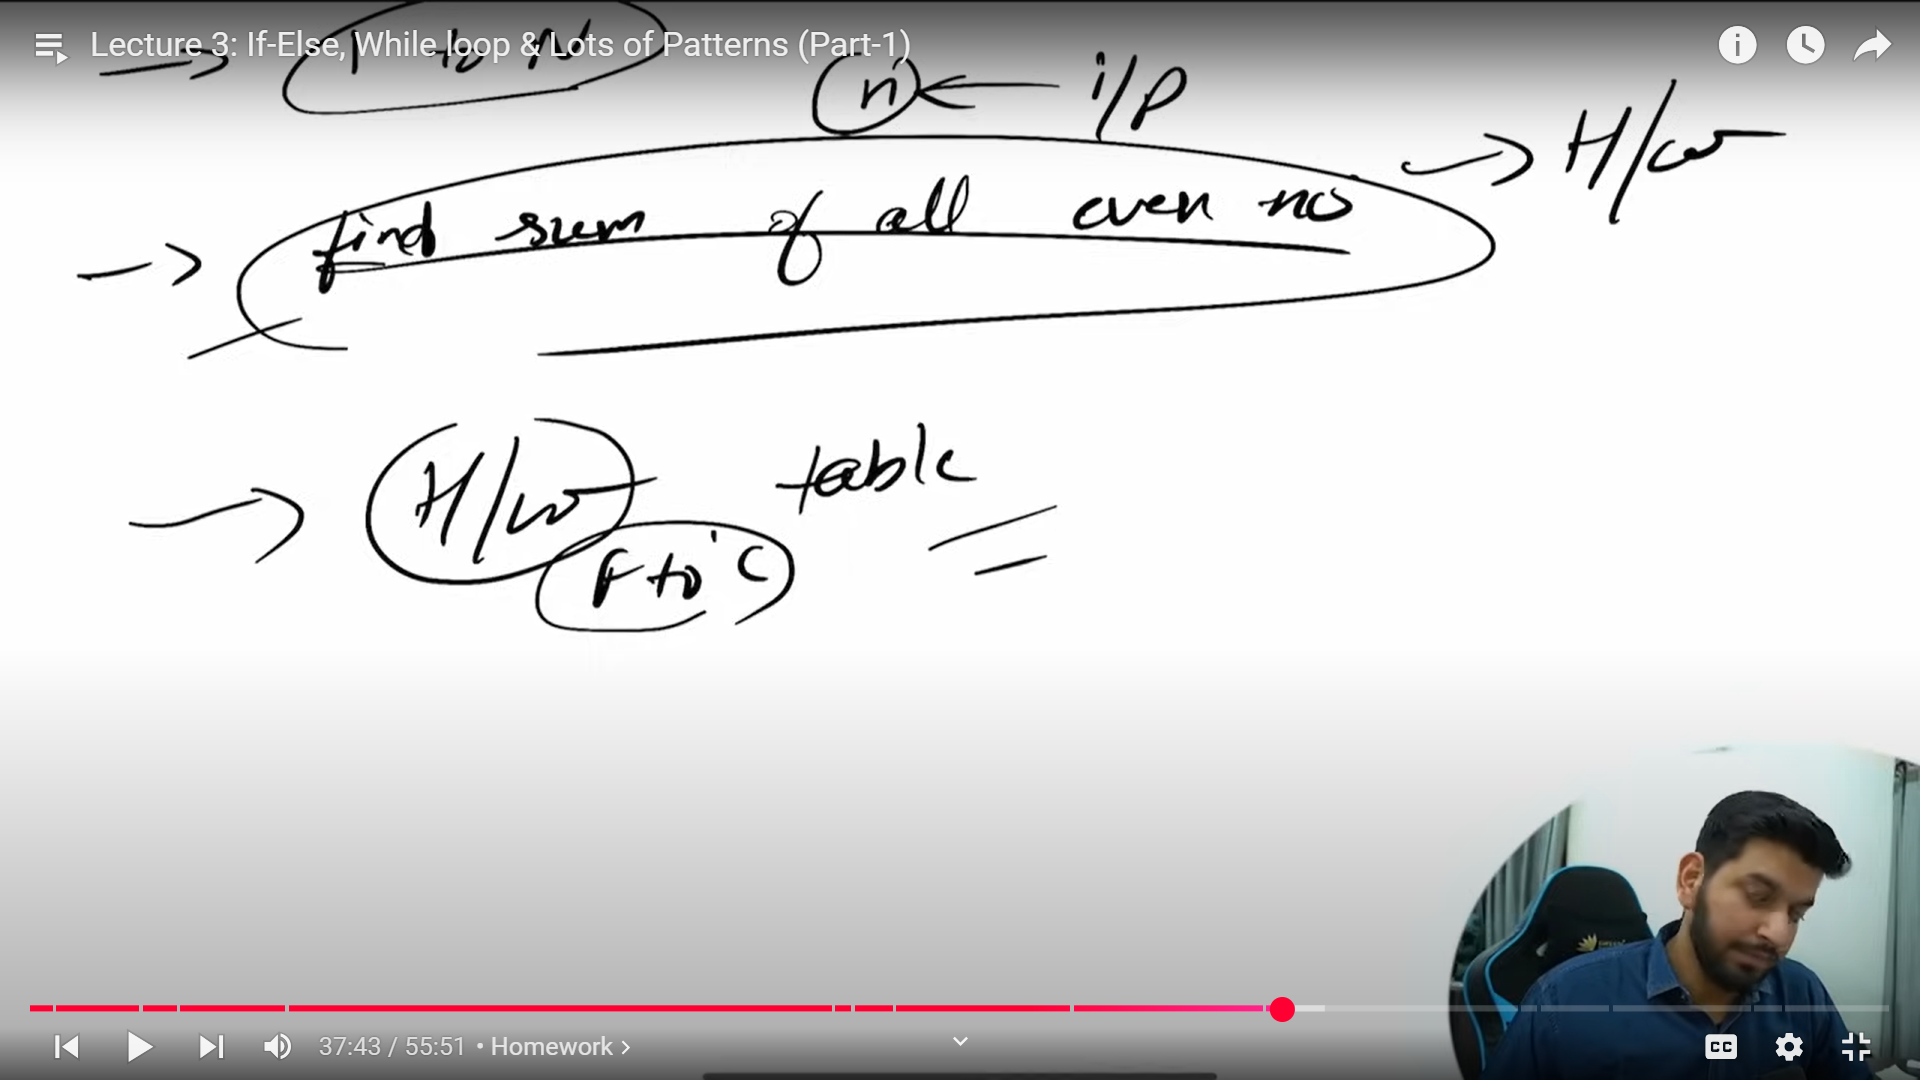 Lecture 3: If-Else, While loop & Lots of Patterns (Part-1)
1 to N
n ← i/p
→ H/w
→ find sum of all even no
→ H/w table
F to °C
37:43 / 55:51 • Homework >
CC